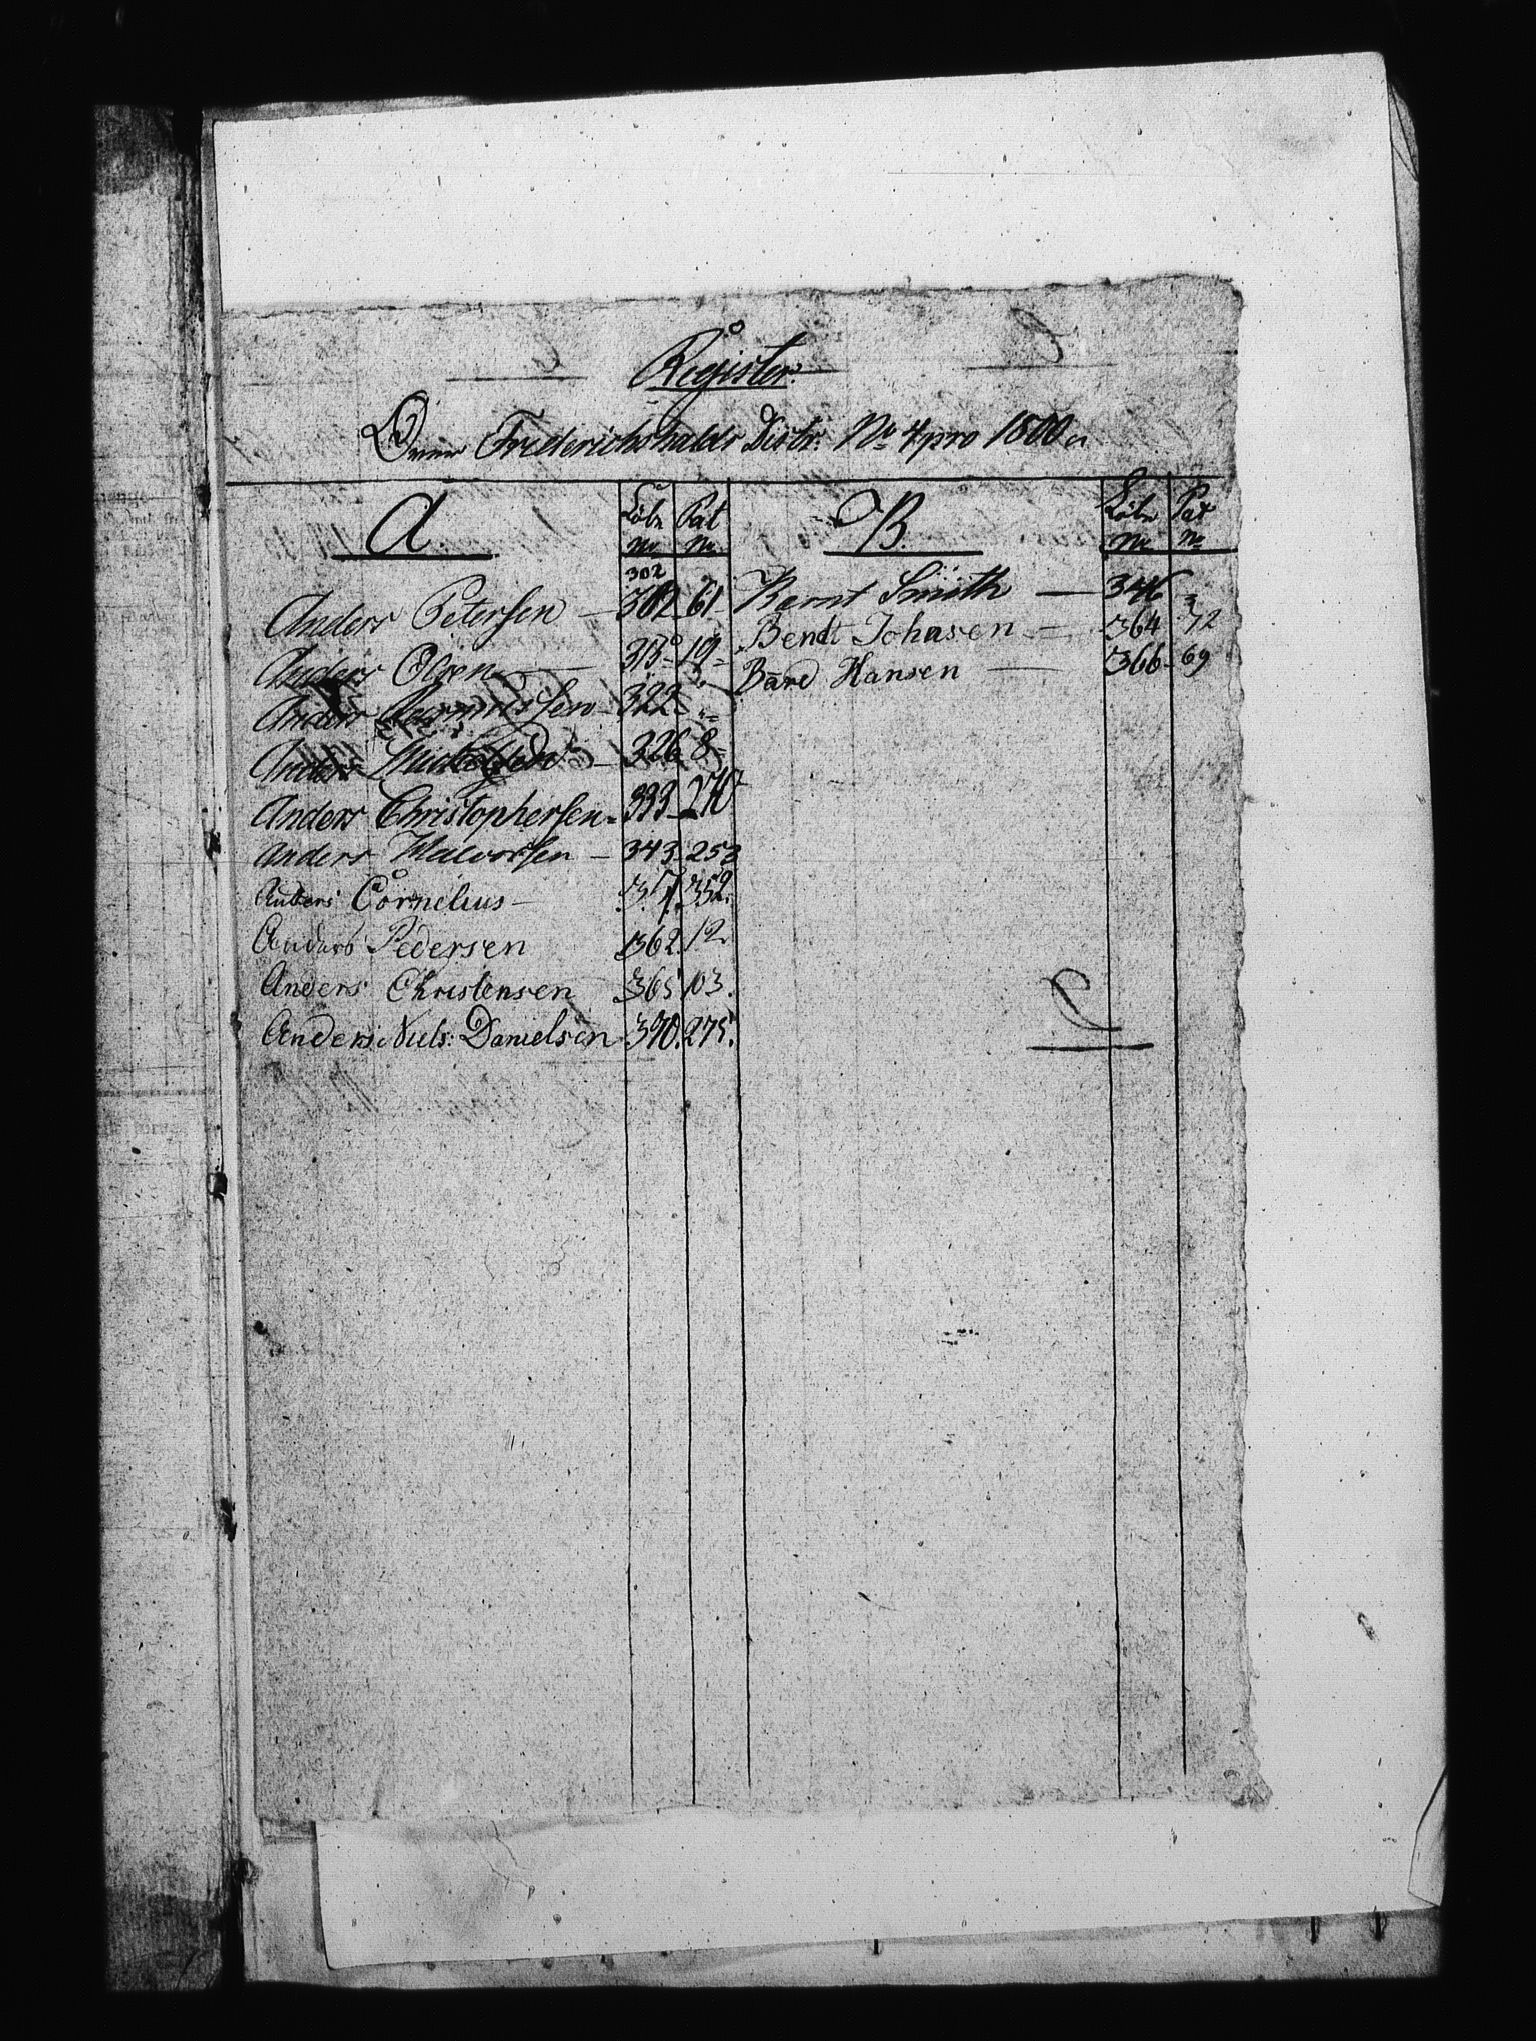 Register
Over Friderichshalds Distr. No 4 pro 1800
A.
Löbe No
Pat No
302
Anders Petersen — 302 61
Anders Olsen — 313 19
Anders Rasmussen — 322 "
Anders — 326 8
Anders Christophersen 333 270
Anders Halvorsen — 343 253
Anders Cornelius — 352
Anders Pedersen 362 12
Anders Christensen 365 103.
Anders Niels: Danielsen 370. 275.
B.
Löbe No
Pat No
Bernt Smith — 346 3
Bendt Johnsen 364 72
Bård Hansen — 366 69